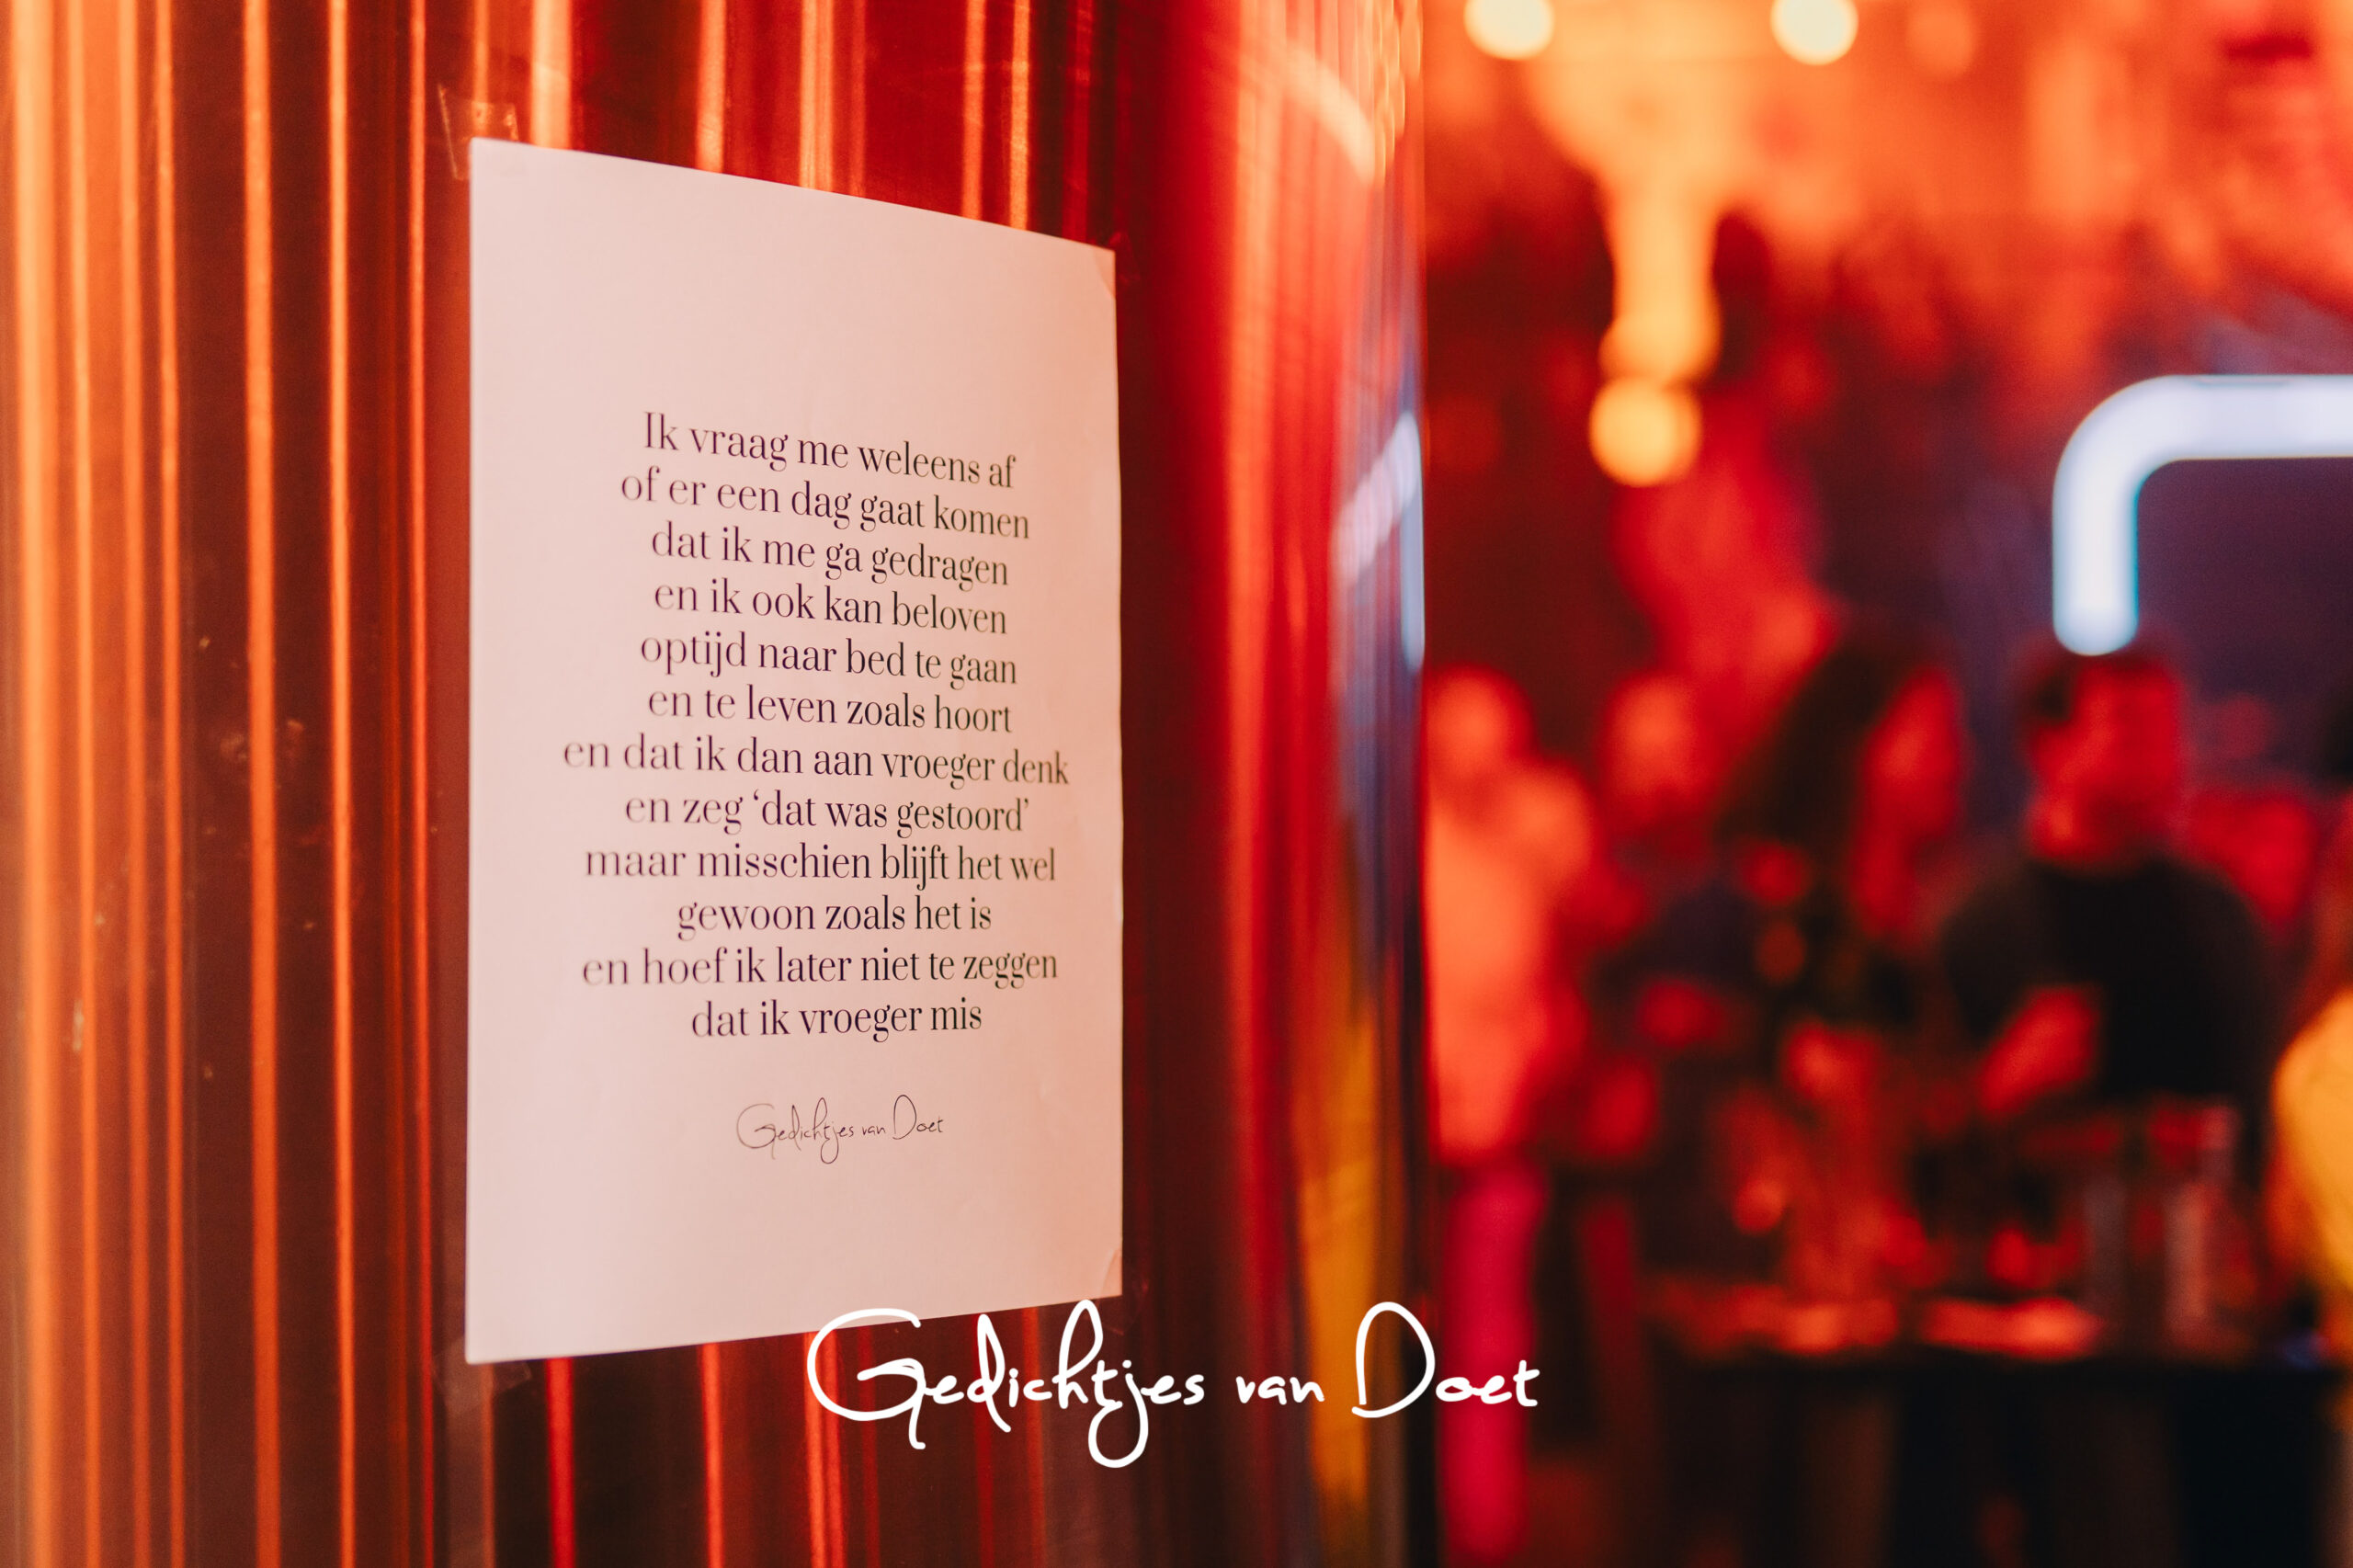 Ik vraag me weleens af
of er een dag gaat komen
dat ik me ga gedragen
en ik ook kan beloven
optijd naar bed te gaan
en te leven zoals hoort
en dat ik dan aan vroeger denk
en zeg ‘dat was gestoord’
maar misschien blijft het wel
gewoon zoals het is
en hoef ik later niet te zeggen
dat ik vroeger mis
Gedichtjes van Doet
Gedichtjes van Doet